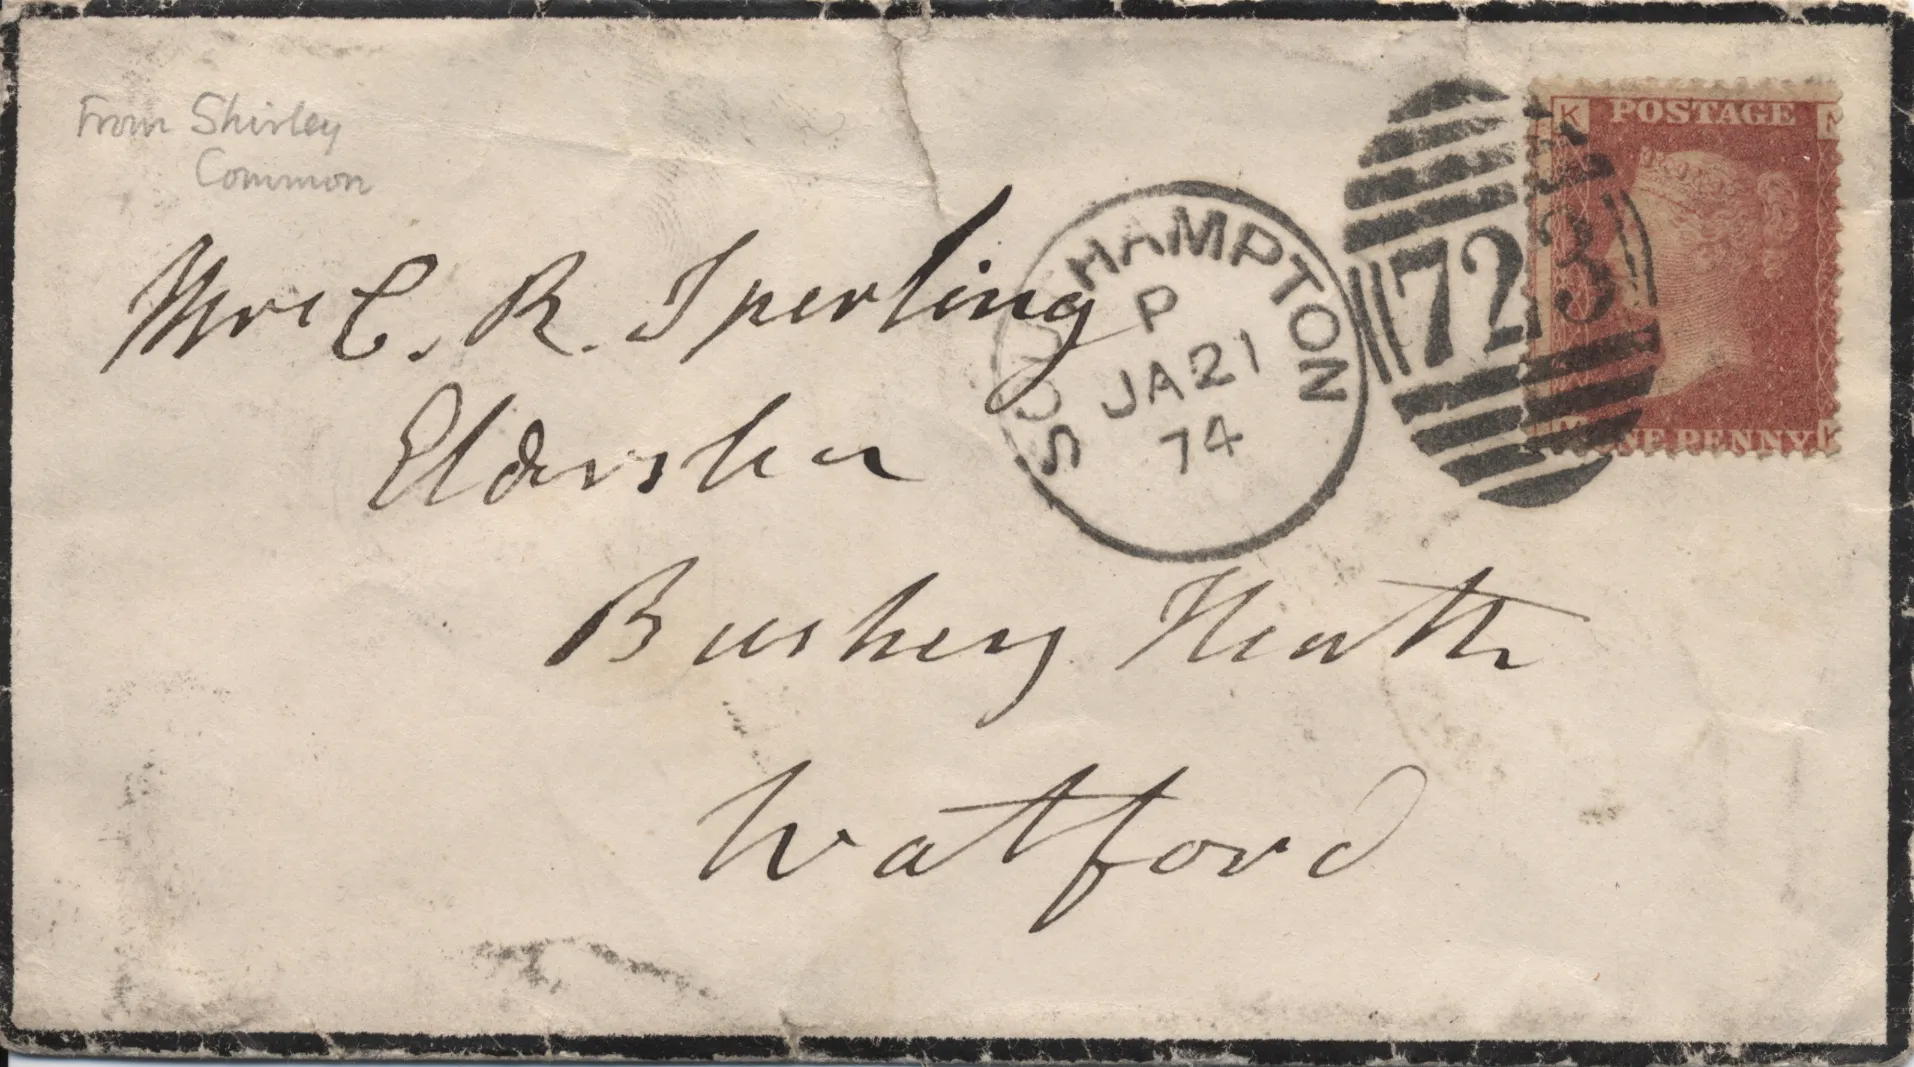 From Shirley
Common
Mrs C. R. Sperling
Bushey Heath
Watford
SOUTHAMPTON
P
JA 21
74
723
K POSTAGE M
ONE PENNY